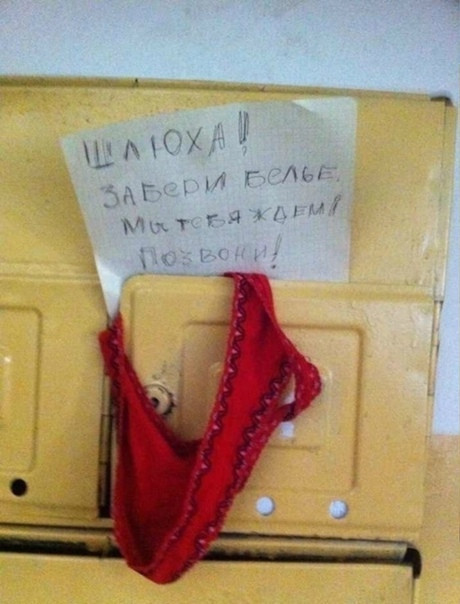 ШЛЮХА!
ЗАБЕРИ БЕЛЬЕ.
МЫ ТЕБЯ ЖДЕМ!
ПОЗВОНИ!